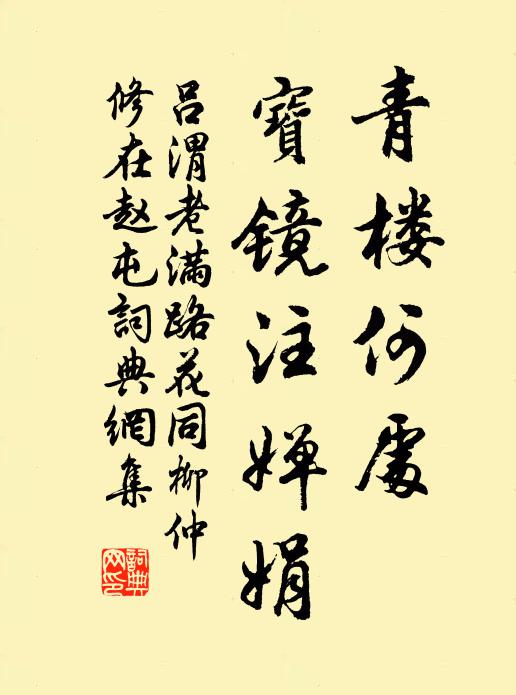 青楼何處
寶鏡注嬋娟
呂渭老满路花同柳仲
修在赵屯詞典網集
詞典
网印